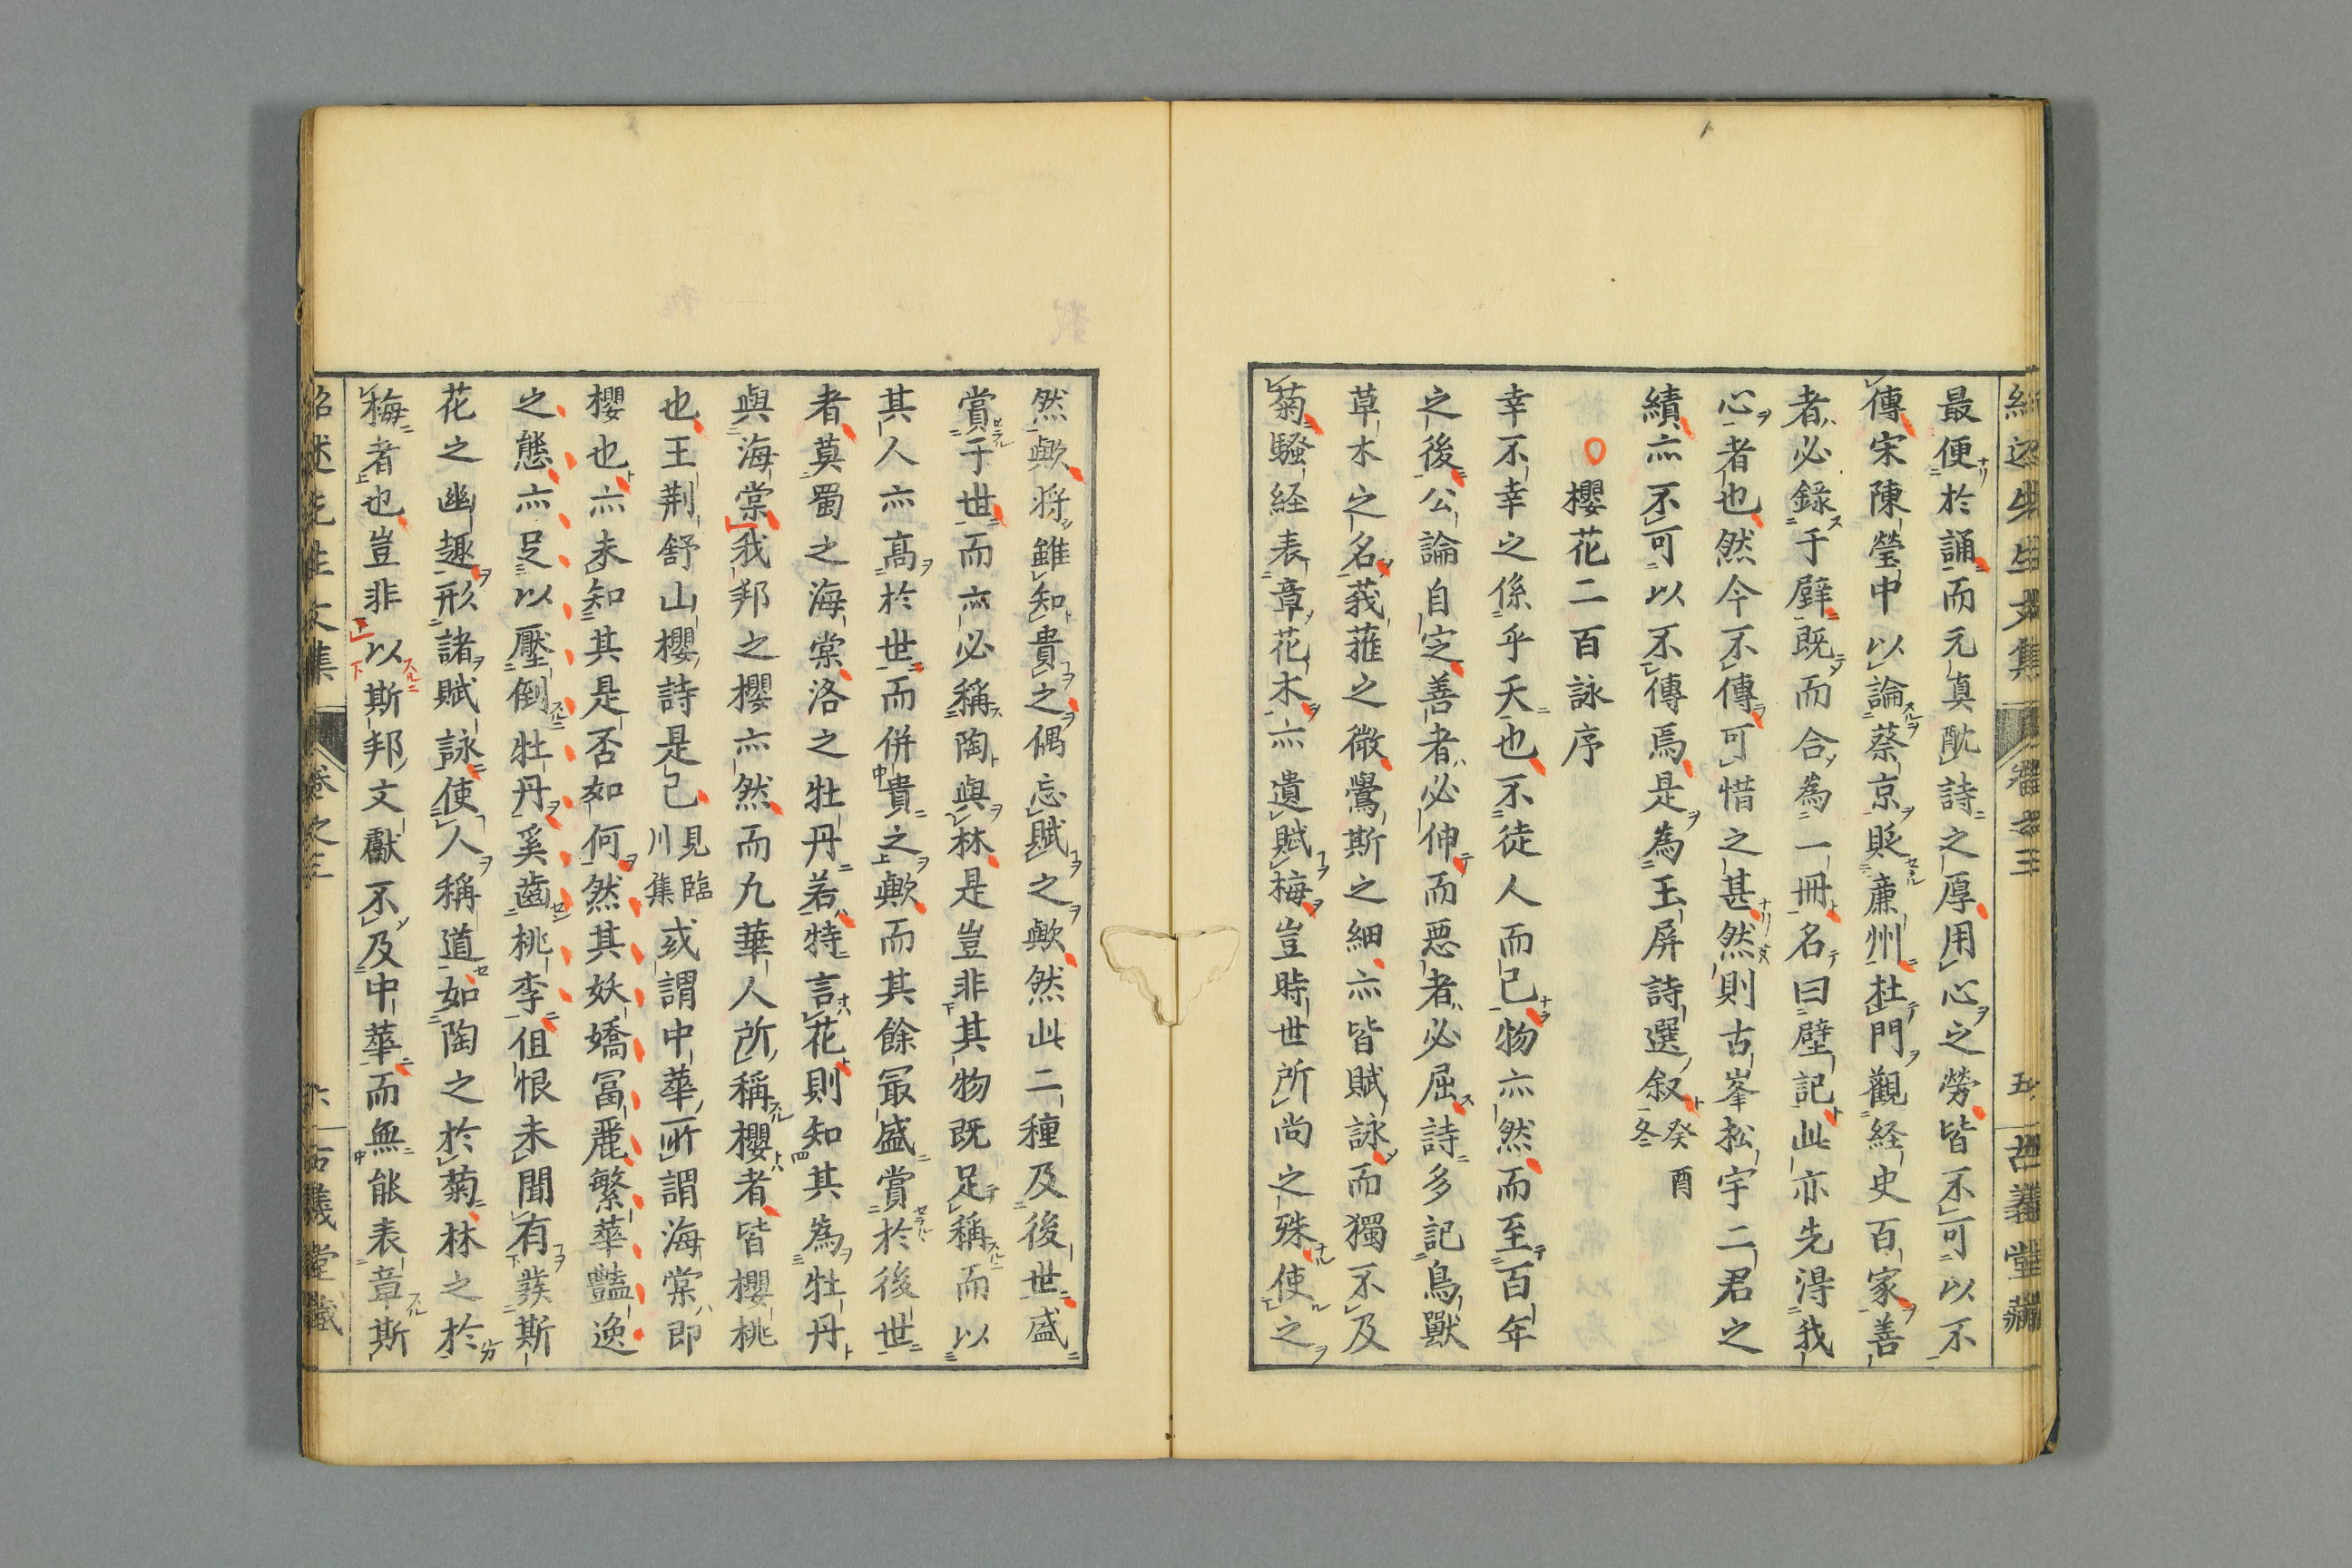 紹述先生文集 卷之三 五 古義堂藏
最便於誦而元真酖詩之厚用心之勞皆不可以不
傳宋陳瑩中以論蔡京貶廉州杜門觀経史百家善
者必錄于壁既而合為一冊名曰壁記此亦先得我
心者也然今不傳可惜之甚然則古峯松宇二君之
績亦不可以不傳焉是為玉屏詩選叙癸酉冬
櫻花二百詠序
幸不幸之係乎天也不徒人而已物亦然而至百年
之後公論自定善者必伸而悪者必屈詩多記鳥獸
草木之名莪蓷之微鷽斯之細亦皆賦詠而獨不及
菊騷経表章花木亦遺賦梅豈時世所尚之殊使之
然歟将雖知貴之偶忘賦之歟然此二種及後世盛
賞于世而亦必稱陶與林是豈非其物既足稱而以
其人亦高於世而併貴之歟而其餘冣盛賞於後世
者莫蜀之海棠洛之牡丹若特言花則知其為牡丹
與海棠我邦之櫻亦然而九華人所稱櫻者皆櫻桃
也王荆舒山櫻詩是已見臨川集或謂中華所謂海棠即
櫻也亦未知其是否如何然其妖嬌冨麗繁華豔逸
之態亦足以壓倒牡丹奚齒桃李但恨未聞有發斯
花之幽趣形諸賦詠使人稱道如陶之於菊林之於
梅者也豈非以斯邦文獻不及中華而無能表章斯
紹述先生文集 卷之三 六 古義堂藏